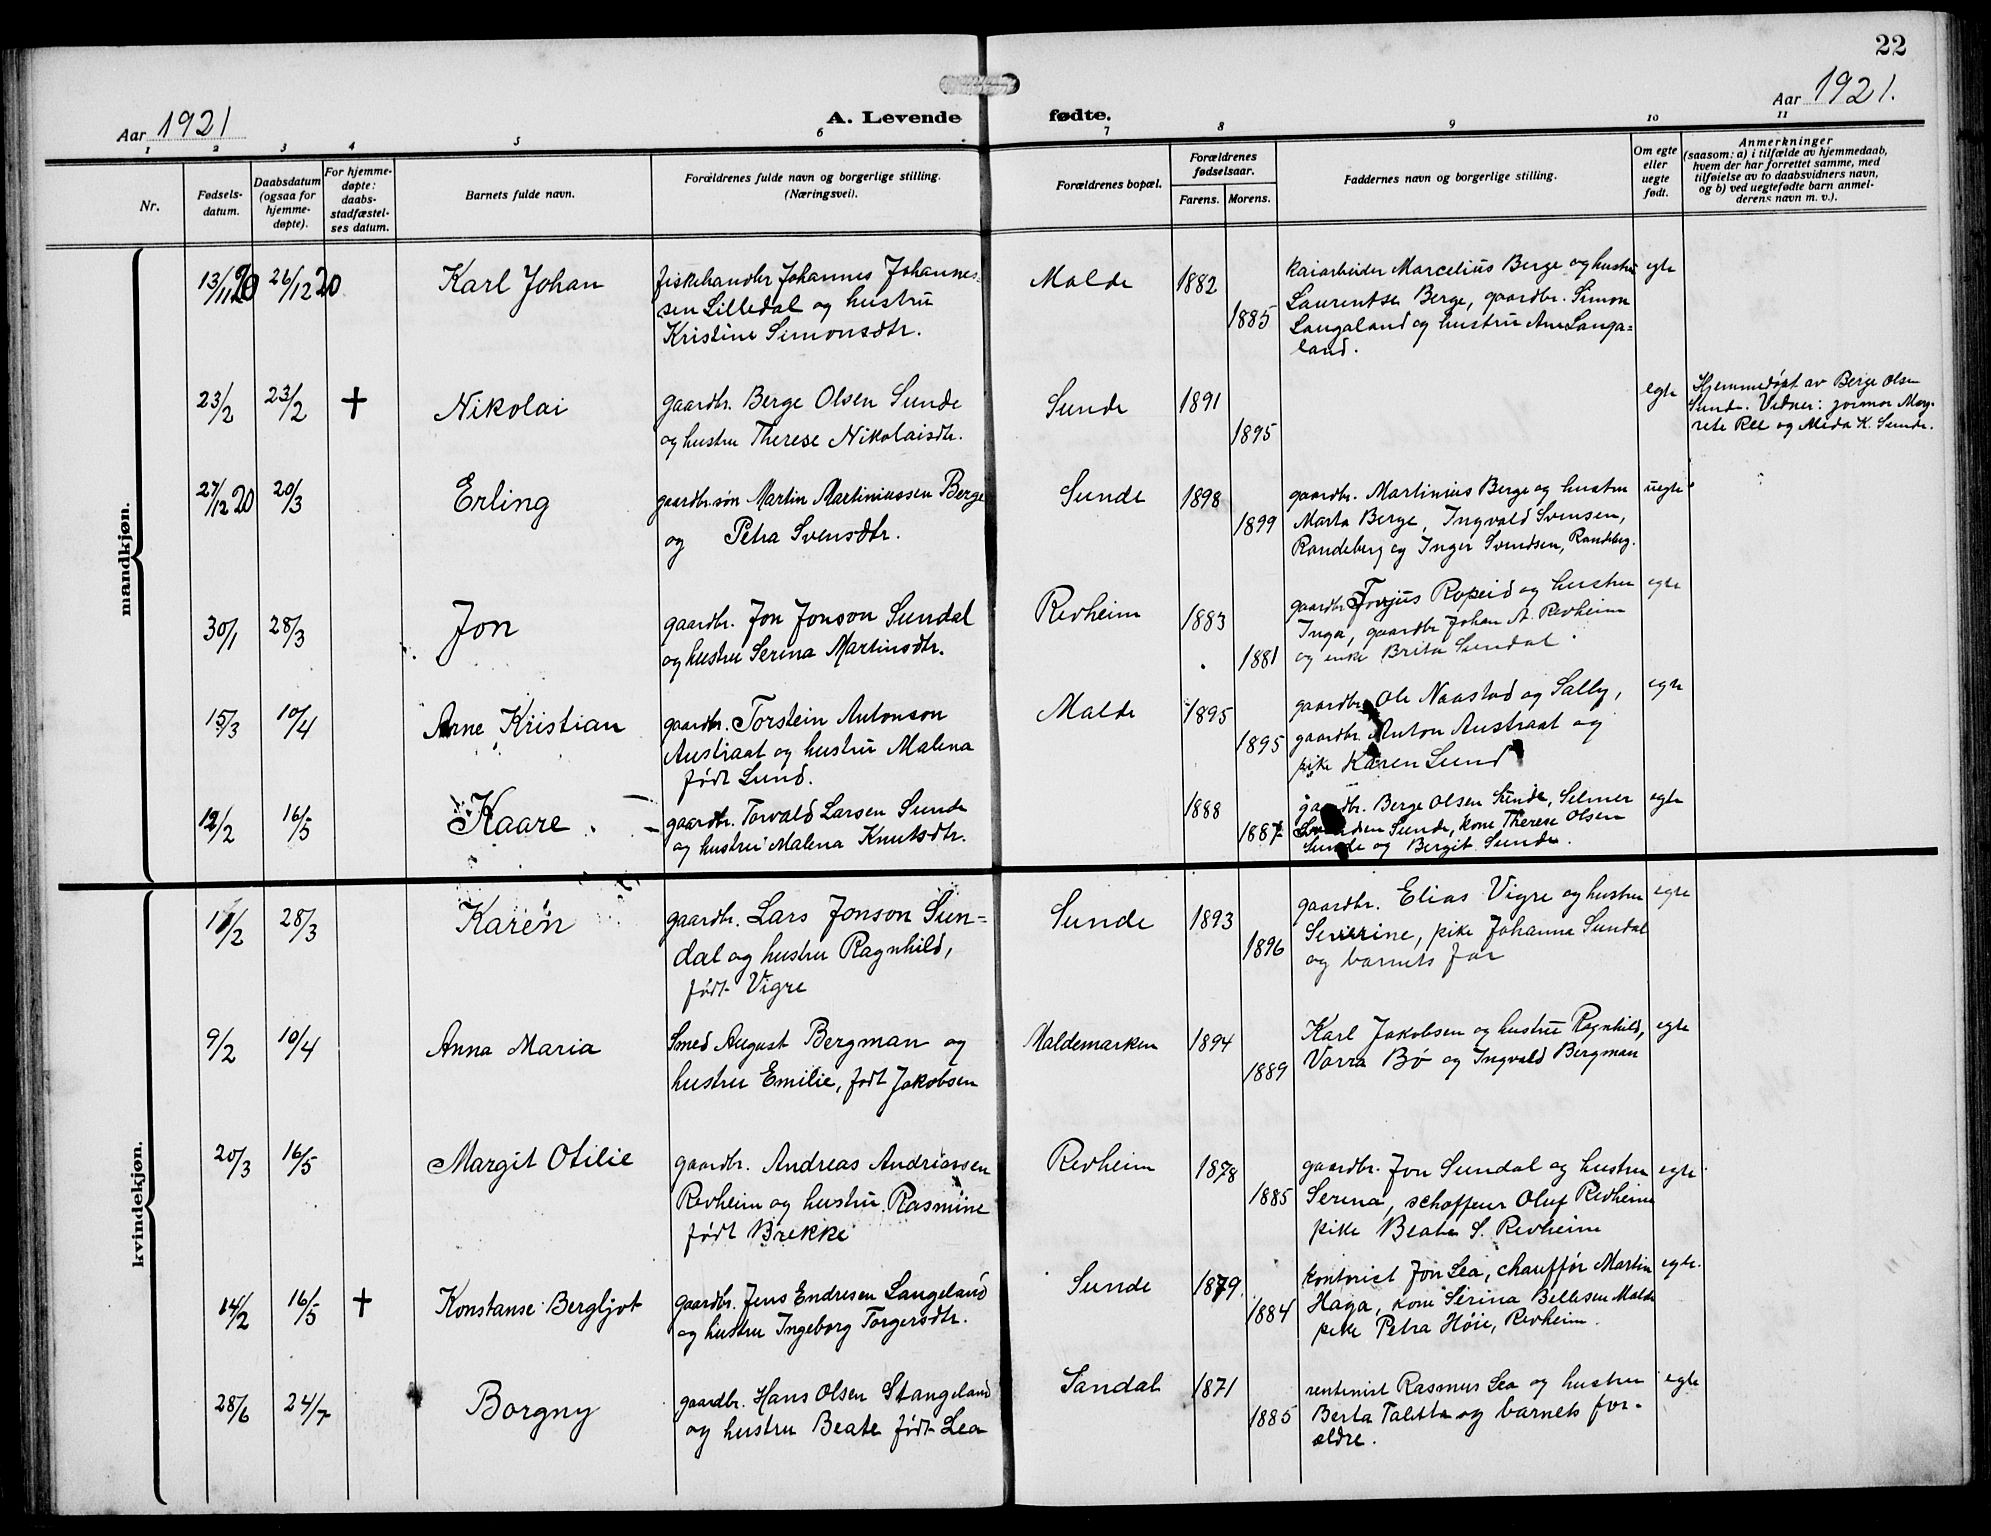 22
Aar 1921
A. Levende fødte.
Aar 1921.
1 2 3 4 5 6 7 8 9 10 11
Nr.
Fødsels-
datum.
Daabsdatum
(ogsaa for
hjemme-
døpte).
For hjemme-
døpte:
daabs-
stadfæstel-
ses datum.
Barnets fulde navn.
Forældrenes fulde navn og borgerlige stilling.
(Næringsvei).
Forældrenes bopæl.
Forældrenes
fødselsaar.
Farens. Morens.
Faddernes navn og borgerlige stilling.
Om egte
eller
uegte
født.
Anmerkninger
(saasom: a) i tilfælde av hjemmedaab,
hvem der har forrettet samme, med
tilføielse av to daabsvidners navn,
og b) ved uegtefødte barn anmel-
derens navn m. v.).
mandkjøn.
13/11 20 26/12 20
Karl Johan
fiskehandler Johannes Johannes-
sen Lilledal og hustru
Kristine Simonsdtr.
Malde
1882
1885
kaiarbeider Marcelius Berge og hustru
Laurentse Berge, gaardbr. Simon
Langaland og hustru Ane Langa=
land.
egte
23/2 23/2 †
Nikolai
gaardbr. Berge Olsen Sunde
og hustru Therese Nikolaisdtr.
Sunde
1891
1895
egte
Hjemmedøpt av Berge Olsen
Sunde. Vidner: jormor Mar-
rete Ree og Meda K. Sunde.
27/12 20 20/3
Erling
gaardbr.søn Martin Martiniussen Berge
og Petra Svensdtr.
Sunde
1898
1899
gaardbr. Martinius Berge og hustru
Marta Berge, Ingvald Svensen,
Randeberg og Inger Svendsen, Randeberg.
uegte
30/1 28/3
Jon
gaardbr. Jon Jonson Sundal
og hustru Serina Martinsdtr.
Revheim
1883
1881
gaardbr. Torjus Ropeid og hustru
Inga, gaardbr Johan A. Revheim
og enke Brita Sundal
egte
15/3 10/4
Arne Kristian
gaardbr. Torstein Antonson
Austraat og hustru Malena
født Lund.
Malde
1895
1895
gaardbr. Ole Naastad og Sally,
gaardbr. Anton Austraat og
pike Karen Lund
egte
12/2 16/5
Kaare.
gaardbr. Torvald Larsen Sunde
og hustru Malena Knutsdtr.
1888
1887
gaardbr. Berge Olsen Sunde, Selmer
Sunde, kone Therese Olsen
Sunde og Bergit Sunde.
egte
kvindekjøn.
11/2 28/3
Karen
gaardbr. Lars Jonson Sun=
dal og hustru Ragnhild,
født Vigre
Sunde
1893
1896
gaardbr. Elias Vigre og hustru
Severine, pike Johanna Sundal
og barnets far
egte
9/2 10/4
Anna Maria
Smed August Bergman og
hustru Emilie, født Jakobsen
Maldemarken
1894
1889
Karl Jakobsen og hustru Ragnhild,
Varra Bø og Ingvald Bergman
egte
20/3 16/5
Margit Otilie
gaardbr. Andreas Andreassen
Revheim og hustru Rasmine
født Brekke
Revheim
1878
1885
gaardbr. Jon Sundal og hustru
Serina, schoffeur Oluf Revheim
pike Beate S. Revheim
egte
14/2 16/5 †
Konstanse Bergljot
gaardbr. Jens Endresen Langeland
og hustru Ingeborg Torgersdtr.
Sunde
1879.
1884
kontorist Jon Lea, chauffør Martin
Haga, kone Serina Bellesen Malde
pike Petra Høie, Revheim.
egte.
28/6 24/7
Borgny
gaardbr. Hans Olsen Stangeland
og hustru Beate født Lea
Sandal
1871
1885
rentenist Rasmus Lea og hustru
Berta Taletta og barnets for-
ældre.
egte